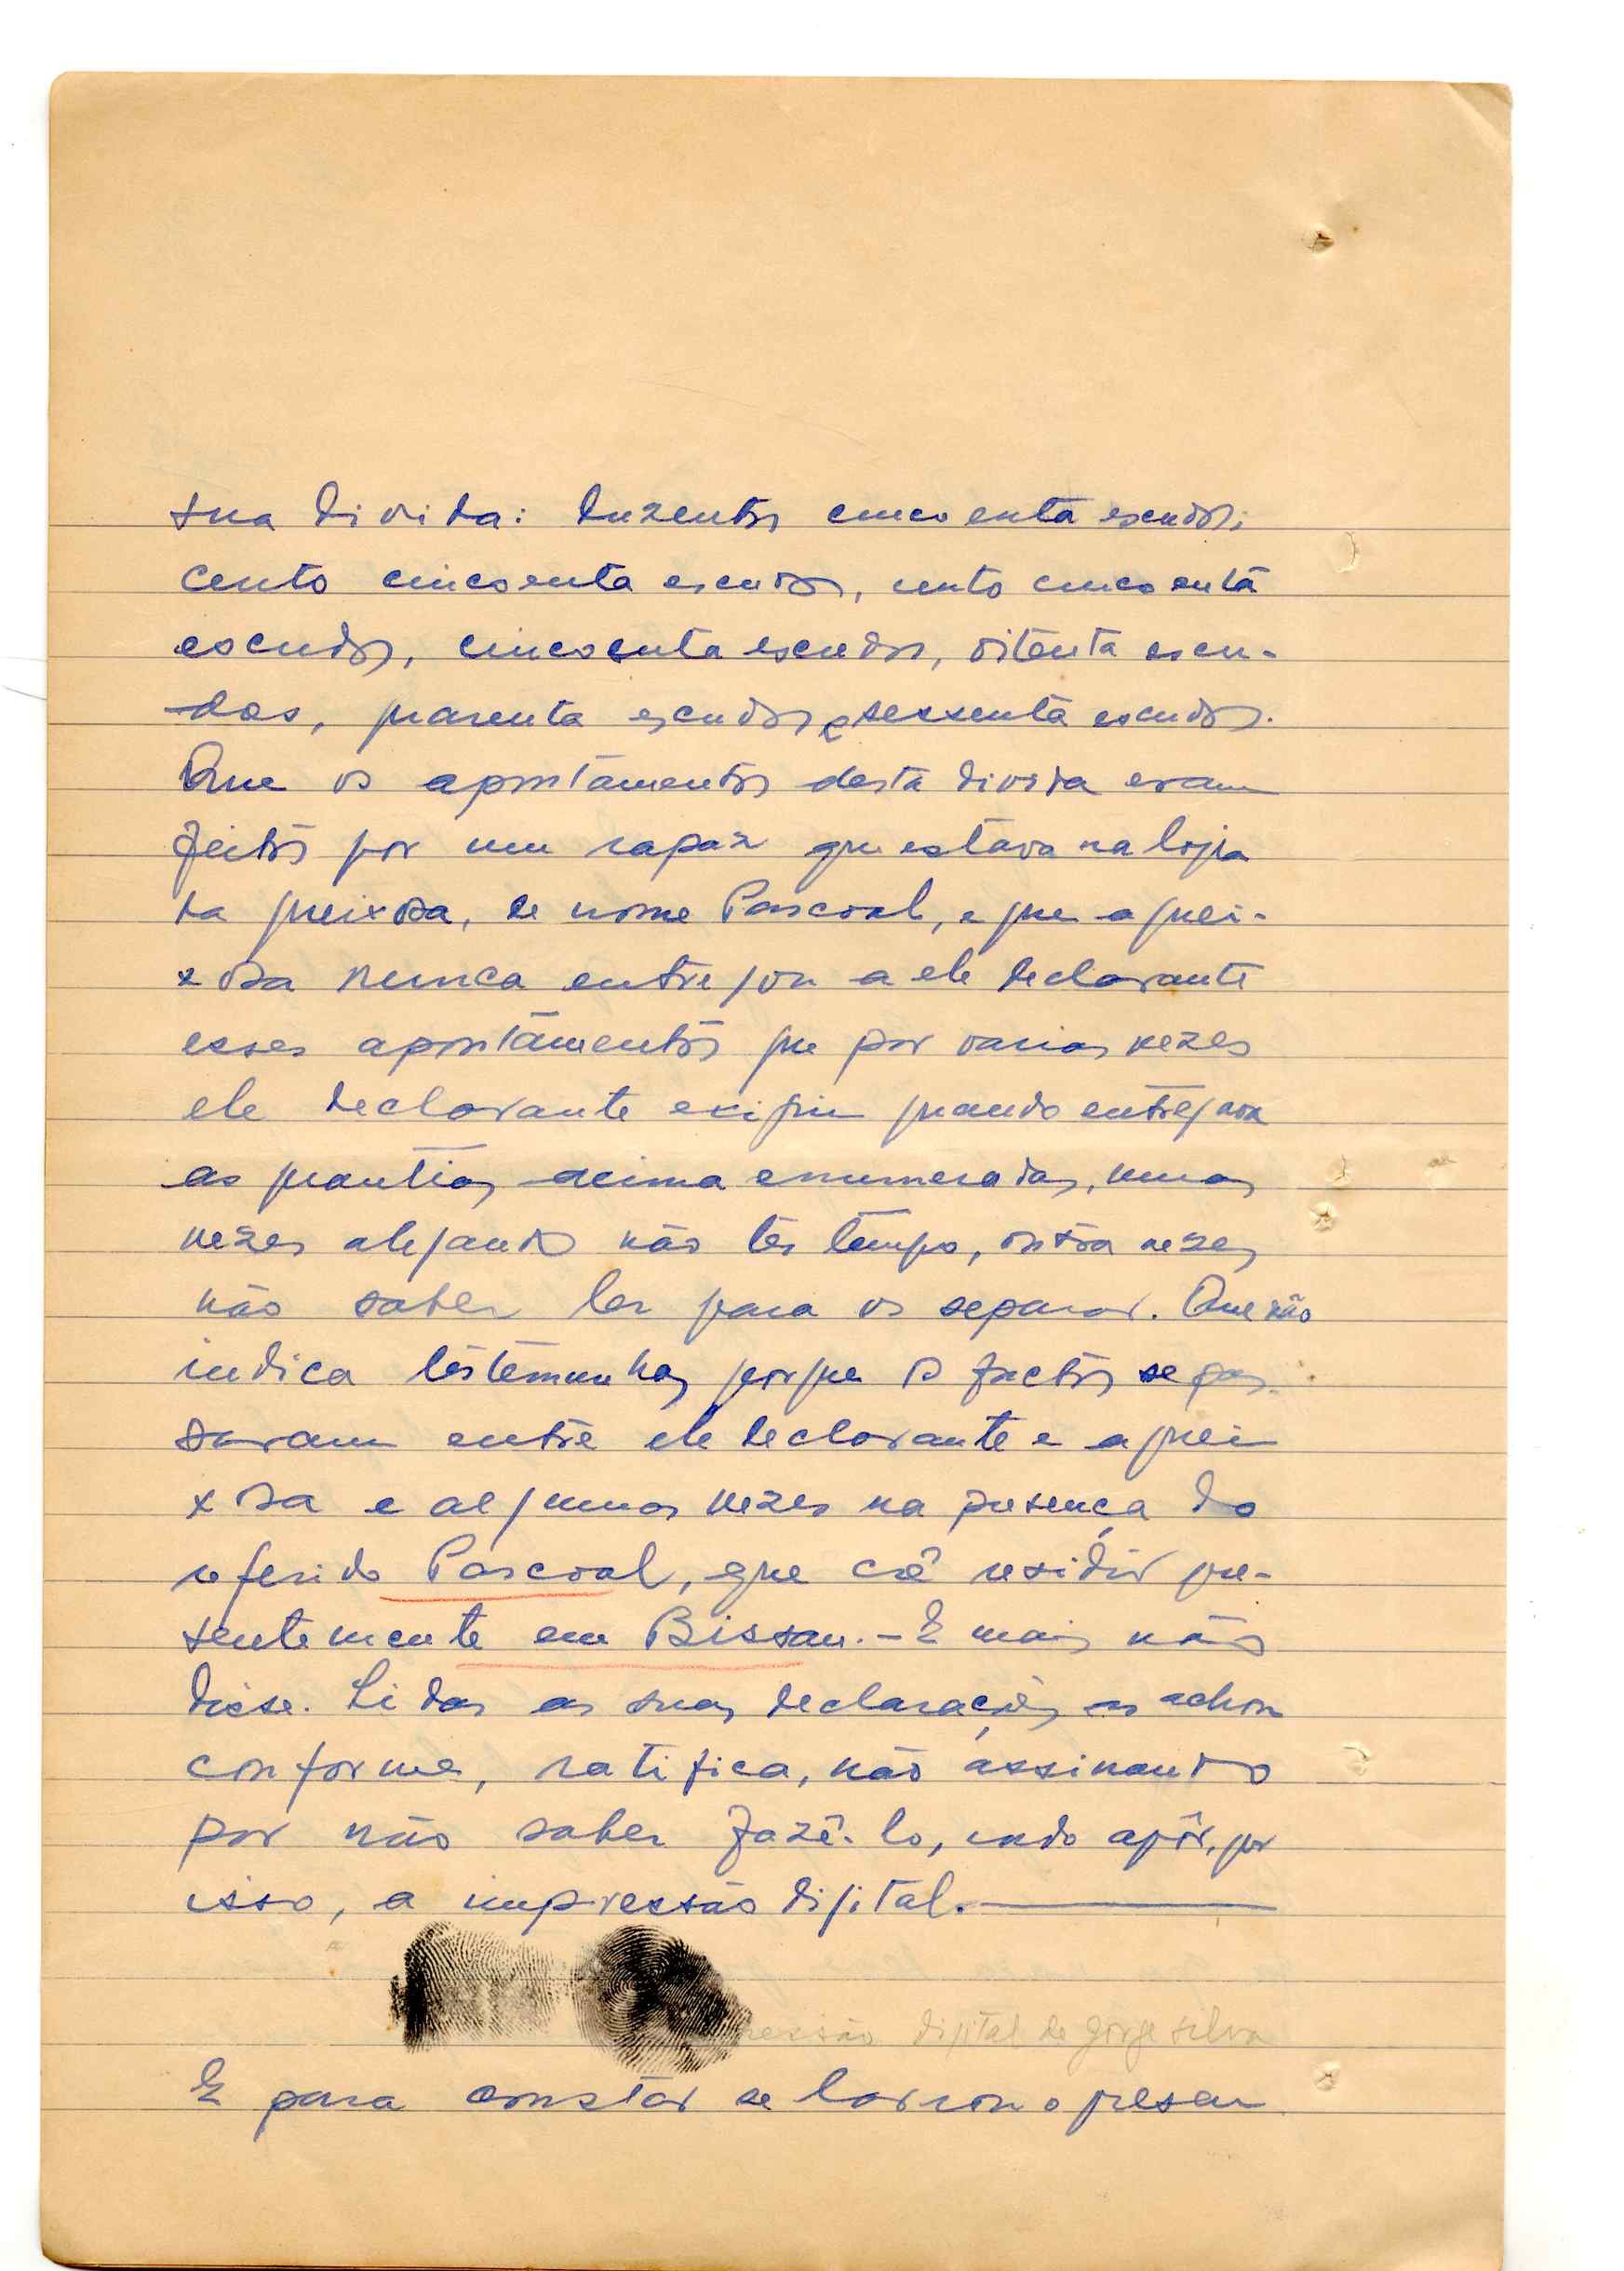 sua divida: duzentos cincoenta escudos;
cento cincoenta escudos, cento cincoenta
escudos, cincoenta escudos, oitenta escu-
dos, quarenta escudos e sessenta escudos.
Que os apontamentos desta divida eram
feitos por um rapaz que estava na loja
da queixosa, de nome Pascoal, e que a quei-
xosa nunca entregou a ele declarante
esses apontamentos que por varias vezes
ele declarante exigiu quando entregava
as quantias acima enumeradas, umas
vezes alegando não ter tempo, outra vezes
não saber ler para os separar. Que não
indica testemunhas porque os factos se pas-
saram entre ele declarante e a quei
xosa e algumas vezes na presença do
referido Pascoal, que crê residir pre-
sentemente em Bissau. - E mais não
disse. Lidas as suas declarações as achou
conforme, ratifica, não assinando
por não saber fazê-lo, indo apôr, por
isso, a impressão digital.
ressão digital de Jorge Silva
E para constar se lavrou o presen